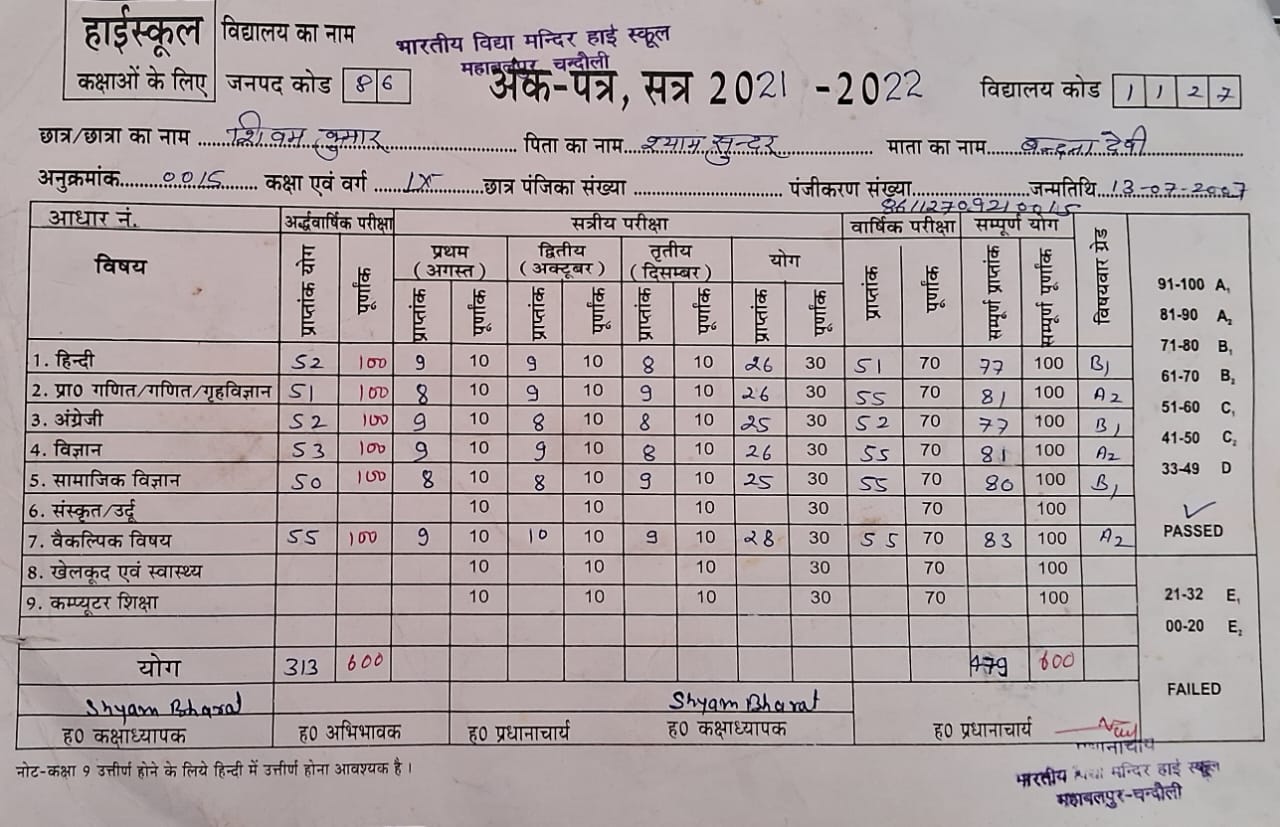 हाईस्कूल विद्यालय का नाम भारतीय विद्या मन्दिर हाई स्कूल
महाबलपुर चन्दौली
कक्षाओं के लिए जनपद कोड 86 अंक-पत्र, सत्र 2021 -2022 विद्यालय कोड 1127
छात्र/छात्रा का नाम शिवम कुमार पिता का नाम श्याम सुन्दर माता का नाम बन्दना देवी
अनुक्रमांक 0015 कक्षा एवं वर्ग IX छात्र पंजिका संख्या पंजीकरण संख्या जन्मतिथि 13-07-2007
8611270921 0015
आधार नं. अर्द्धवार्षिक परीक्षा सत्रीय परीक्षा वार्षिक परीक्षा सम्पूर्ण योग विषयवार ग्रेड
विषय प्रथम (अगस्त) द्वितीय (अक्टूबर) तृतीय (दिसम्बर) योग
प्राप्तांक योग पूर्णांक प्राप्तांक पूर्णांक प्राप्तांक पूर्णांक प्राप्तांक पूर्णांक प्राप्तांक पूर्णांक प्राप्तांक पूर्णांक सम्पूर्ण प्राप्तांक सम्पूर्ण पूर्णांक
1. हिन्दी 52 100 9 10 9 10 8 10 26 30 51 70 77 100 B1
2. प्रा0 गणित/गणित/गृहविज्ञान 51 100 8 10 9 10 9 10 26 30 55 70 81 100 A2
3. अंग्रेजी 52 100 9 10 8 10 8 10 25 30 52 70 77 100 B1
4. विज्ञान 53 100 9 10 9 10 8 10 26 30 55 70 81 100 A2
5. सामाजिक विज्ञान 50 100 8 10 8 10 9 10 25 30 55 70 80 100 B1
6. संस्कृत/उर्दू 10 10 10 30 70 100
7. वैकल्पिक विषय 55 100 9 10 10 10 9 10 28 30 55 70 83 100 A2
8. खेलकूद एवं स्वास्थ्य 10 10 10 30 70 100
9. कम्प्यूटर शिक्षा 10 10 10 30 70 100
योग 313 600 479 600
91-100 A1
81-90 A2
71-80 B1
61-70 B2
51-60 C1
41-50 C2
33-49 D
PASSED
21-32 E1
00-20 E2
FAILED
Shyam Bharat Shyam Bharat
ह0 कक्षाध्यापक ह0 अभिभावक ह0 प्रधानाचार्य ह0 कक्षाध्यापक ह0 प्रधानाचार्य
प्रधानाचार्य
नोट-कक्षा 9 उत्तीर्ण होने के लिये हिन्दी में उत्तीर्ण होना आवश्यक है ।
भारतीय विद्या मन्दिर हाई स्कूल
महाबलपुर-चन्दौली